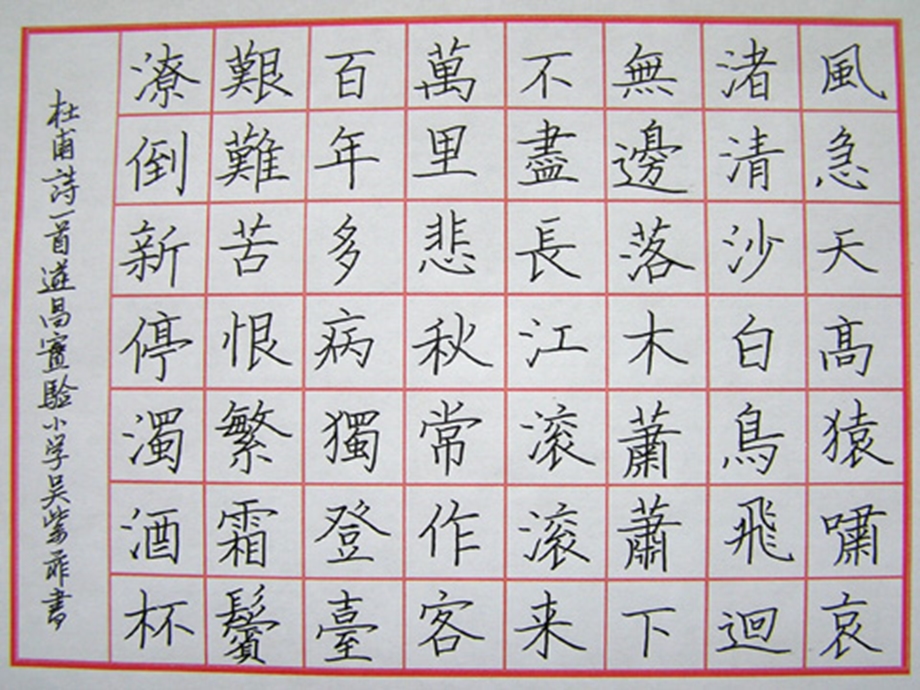 風急天高猿嘯哀
渚清沙白鳥飛迴
無邊落木蕭蕭下
不盡長江滚滚来
萬里悲秋常作客
百年多病獨登臺
艱難苦恨繁霜鬢
潦倒新停濁酒杯
杜甫詩一首遂昌實驗小学吴紫菲書